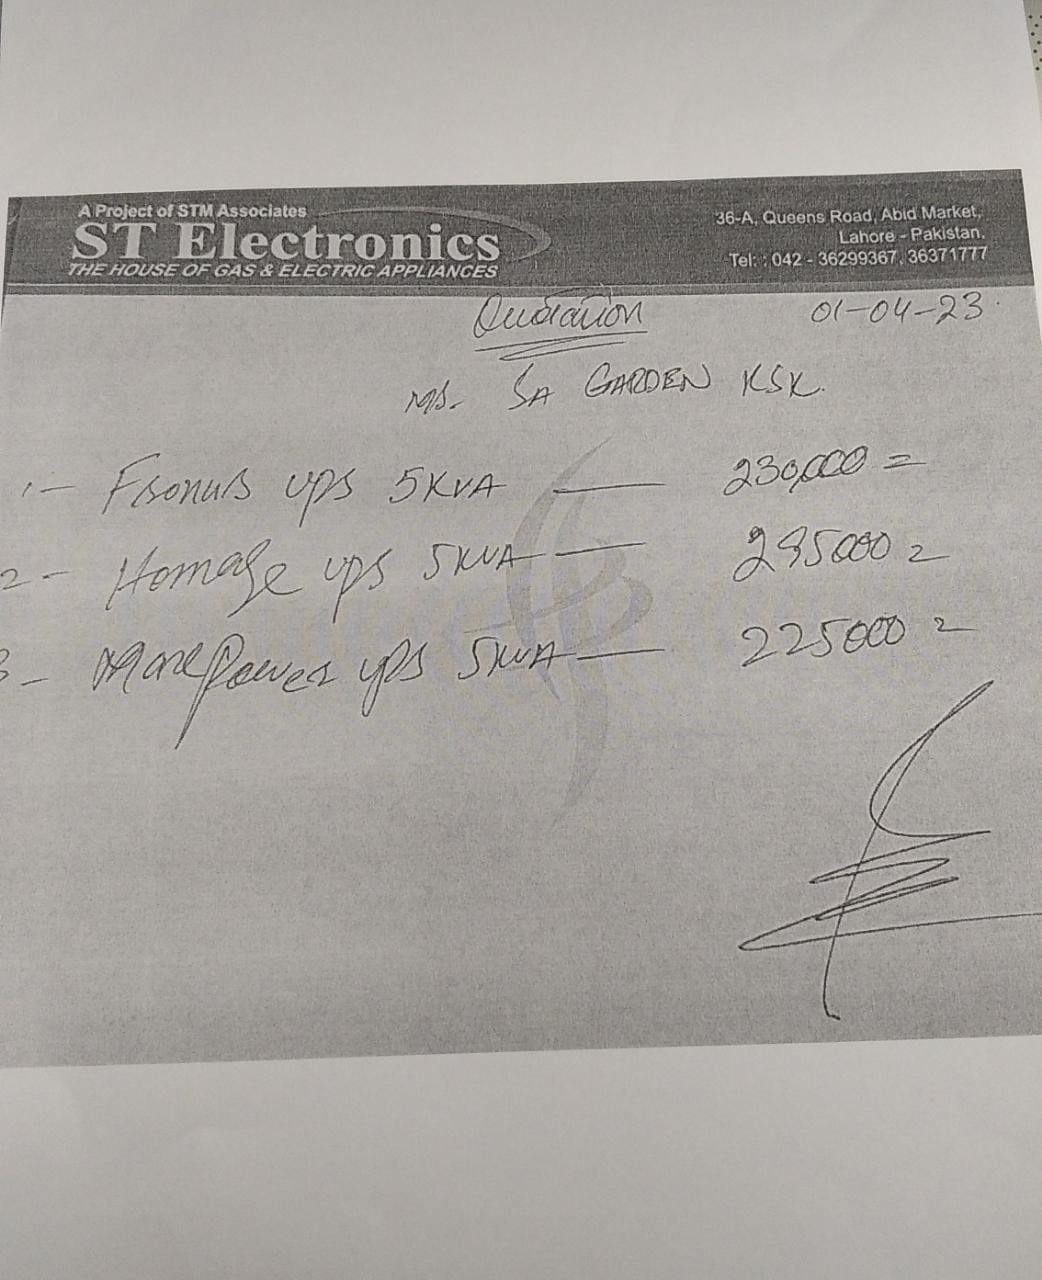 A Project of STM Associates
ST Electronics
THE HOUSE OF GAS & ELECTRIC APPLIANCES
36-A, Queens Road, Abid Market,
Lahore - Pakistan.
Tel: : 042 - 36299367, 36371777
Quotation 01-04-23
M/S. SA GARDEN KSK.
1- Fronus ups 5KVA — 230,000 =
2- Homage ups 5KVA — 000 =
3- Power ups 5KVA — 225000 =